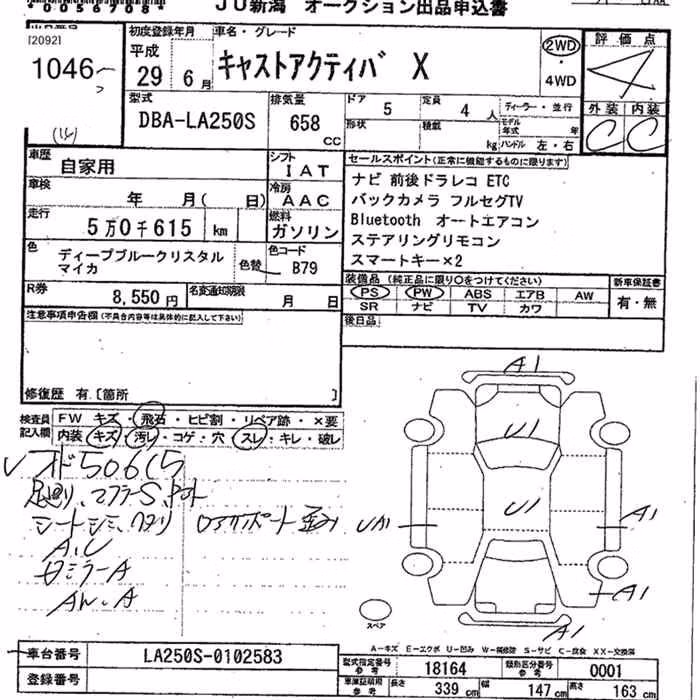 0056708*
JU新潟 オークション出品申込書
[2092]
1046
初度登録年月
車名・グレード
平成
29年 6月
キャストアクティバ X
2WD
・
4WD
評価点
4
外装 内装
C C
型式
DBA-LA250S
排気量
658 cc
ドア 5
定員 4 人
ディーラー・並行
形状
積載 kg
モデル年式 年
ハンドル 左・右
車歴
自家用
シフト
IAT
車検
年 月( 日)
冷房
AAC
走行
5万0千615 km
燃料
ガソリン
色
ディープブルークリスタル
マイカ
色替
色コード
B79
R券
8,550 円
名変通知期限
月 日
セールスポイント(正常に機能するものに限ります)
ナビ 前後ドラレコ ETC
バックカメラ フルセグTV
Bluetooth オートエアコン
ステアリングリモコン
スマートキー×2
装備品(純正品に限り○をつけてください)
PS PW ABS エアB AW
SR ナビ TV カワ
新車保証書
有・無
後日品
注意事項申告欄(不具合内容等は具体的に記入して下さい)
修復歴 有[箇所 ]
検査員
記入欄
FW キズ・飛石・ヒビ割・リペア跡・×要
内装 キズ・汚レ・コゲ・穴・スレ・キレ・破レ
50615
マフラーS
シートシミ
A.U
ミラーA
A
A1
U1
U1
UA1
A1
A1
A1
スペア
A-キズ E-エクボ U-凹み W-補修跡 S-サビ C-腐食 XX-交換済
車台番号
LA250S-0102583
登録番号
型式指定番号
参考
18164
類別区分番号
参考
0001
車庫証明用
参考
長さ 339 cm
幅 147 cm
高さ 163 cm